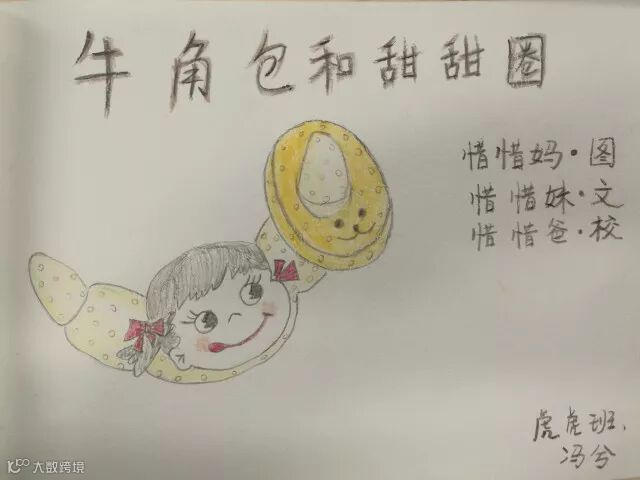 牛角包和甜甜圈
惜惜妈·图
惜惜妹·文
惜惜爸·校
虎虎班、
冯兮
大数跨境